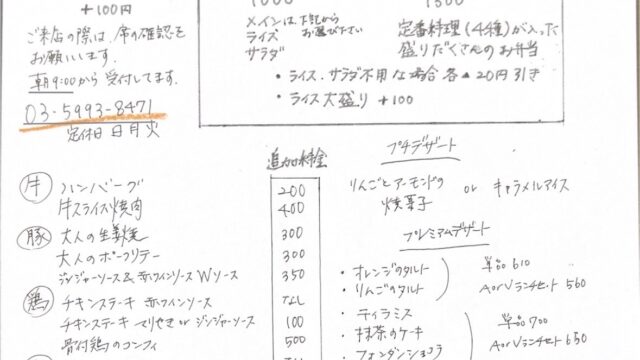 +100円
ご来店の際は、席の確認を
お願いします。
朝9:00から受付してます。
03-5993-8471
定休日 日月火
1500
メインは下記から
お選び下さい
ライス
サラダ
定番料理(4種)が入った
盛りだくさんのお弁当
・ライス、サラダ不用な場合 各▲20円引き
・ライス大盛り +100
追加料金
牛 ハンバーグ 200
牛スライス焼肉 400
豚 大人の生姜焼 300
大人のポークソテー 300
ジンジャーソース&赤ワインソース Wソース 350
鶏 チキンステーキ 赤ワインソース なし
チキンステーキ てりやき or ジンジャーソース 100
骨付鶏のコンフィ 500
プチデザート
りんごとアーモンドの
焼菓子 or キャラメルアイス
プレミアムデザート
・オレンジのタルト
・りんごのタルト
単品 610
AorVランチセット 560
・ティラミス
・抹茶のケーキ
・フォンダンショコラ
単品 700
AorVランチセット 650